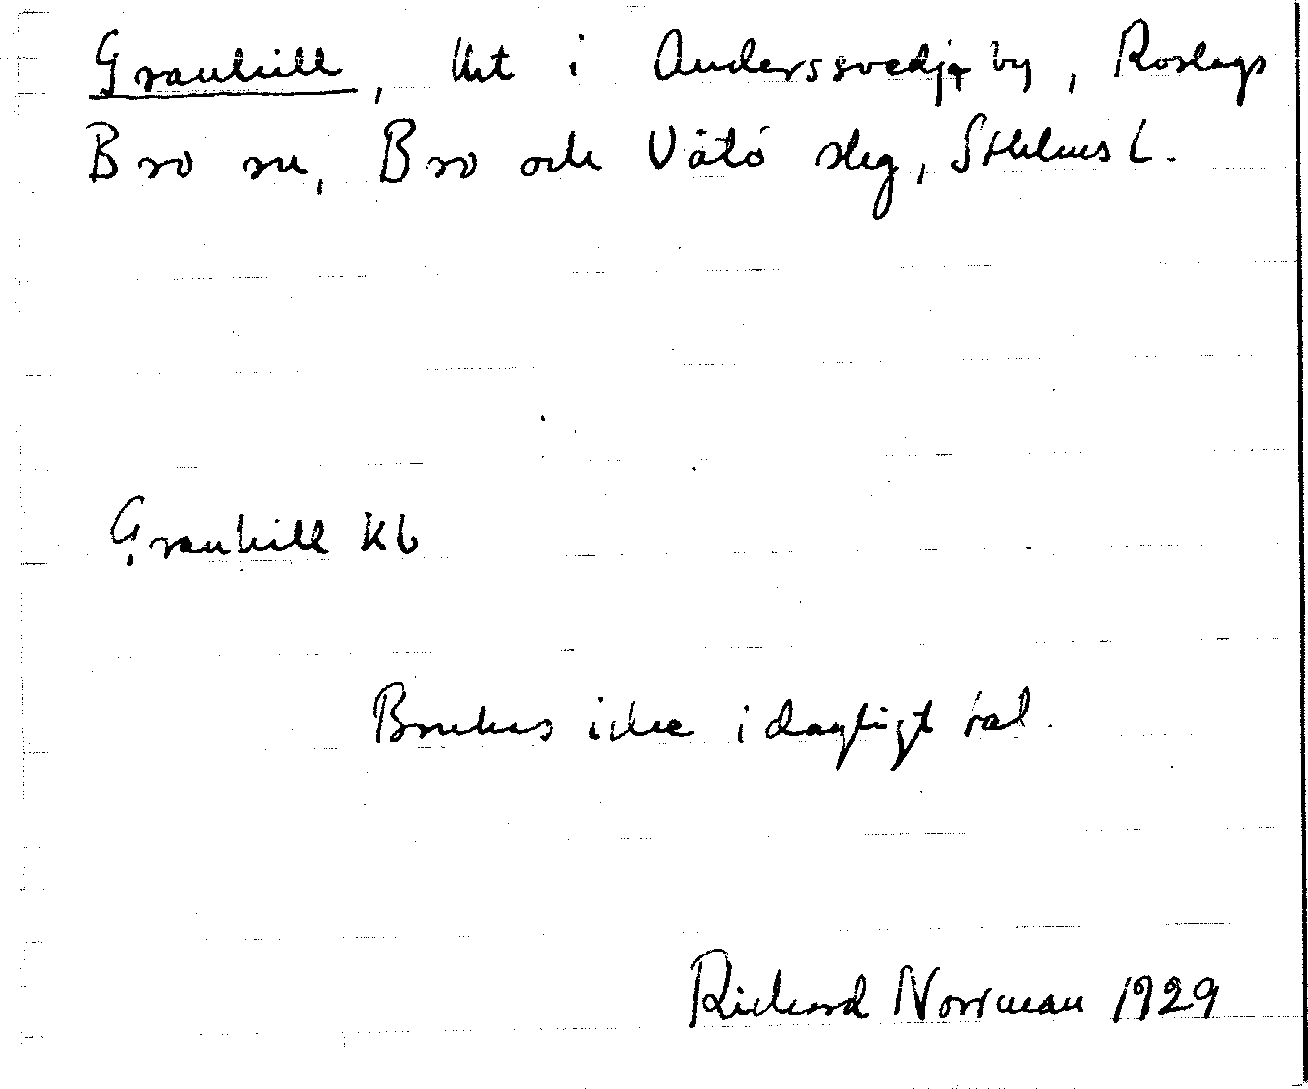 Granhill, lht i Anderssvedja by, Roslags
Bro sn, Bro och Vätö slag, Sthlms L.
Granhill kb
Brukas icke i dagligt tal.
Richard Norrman 1929